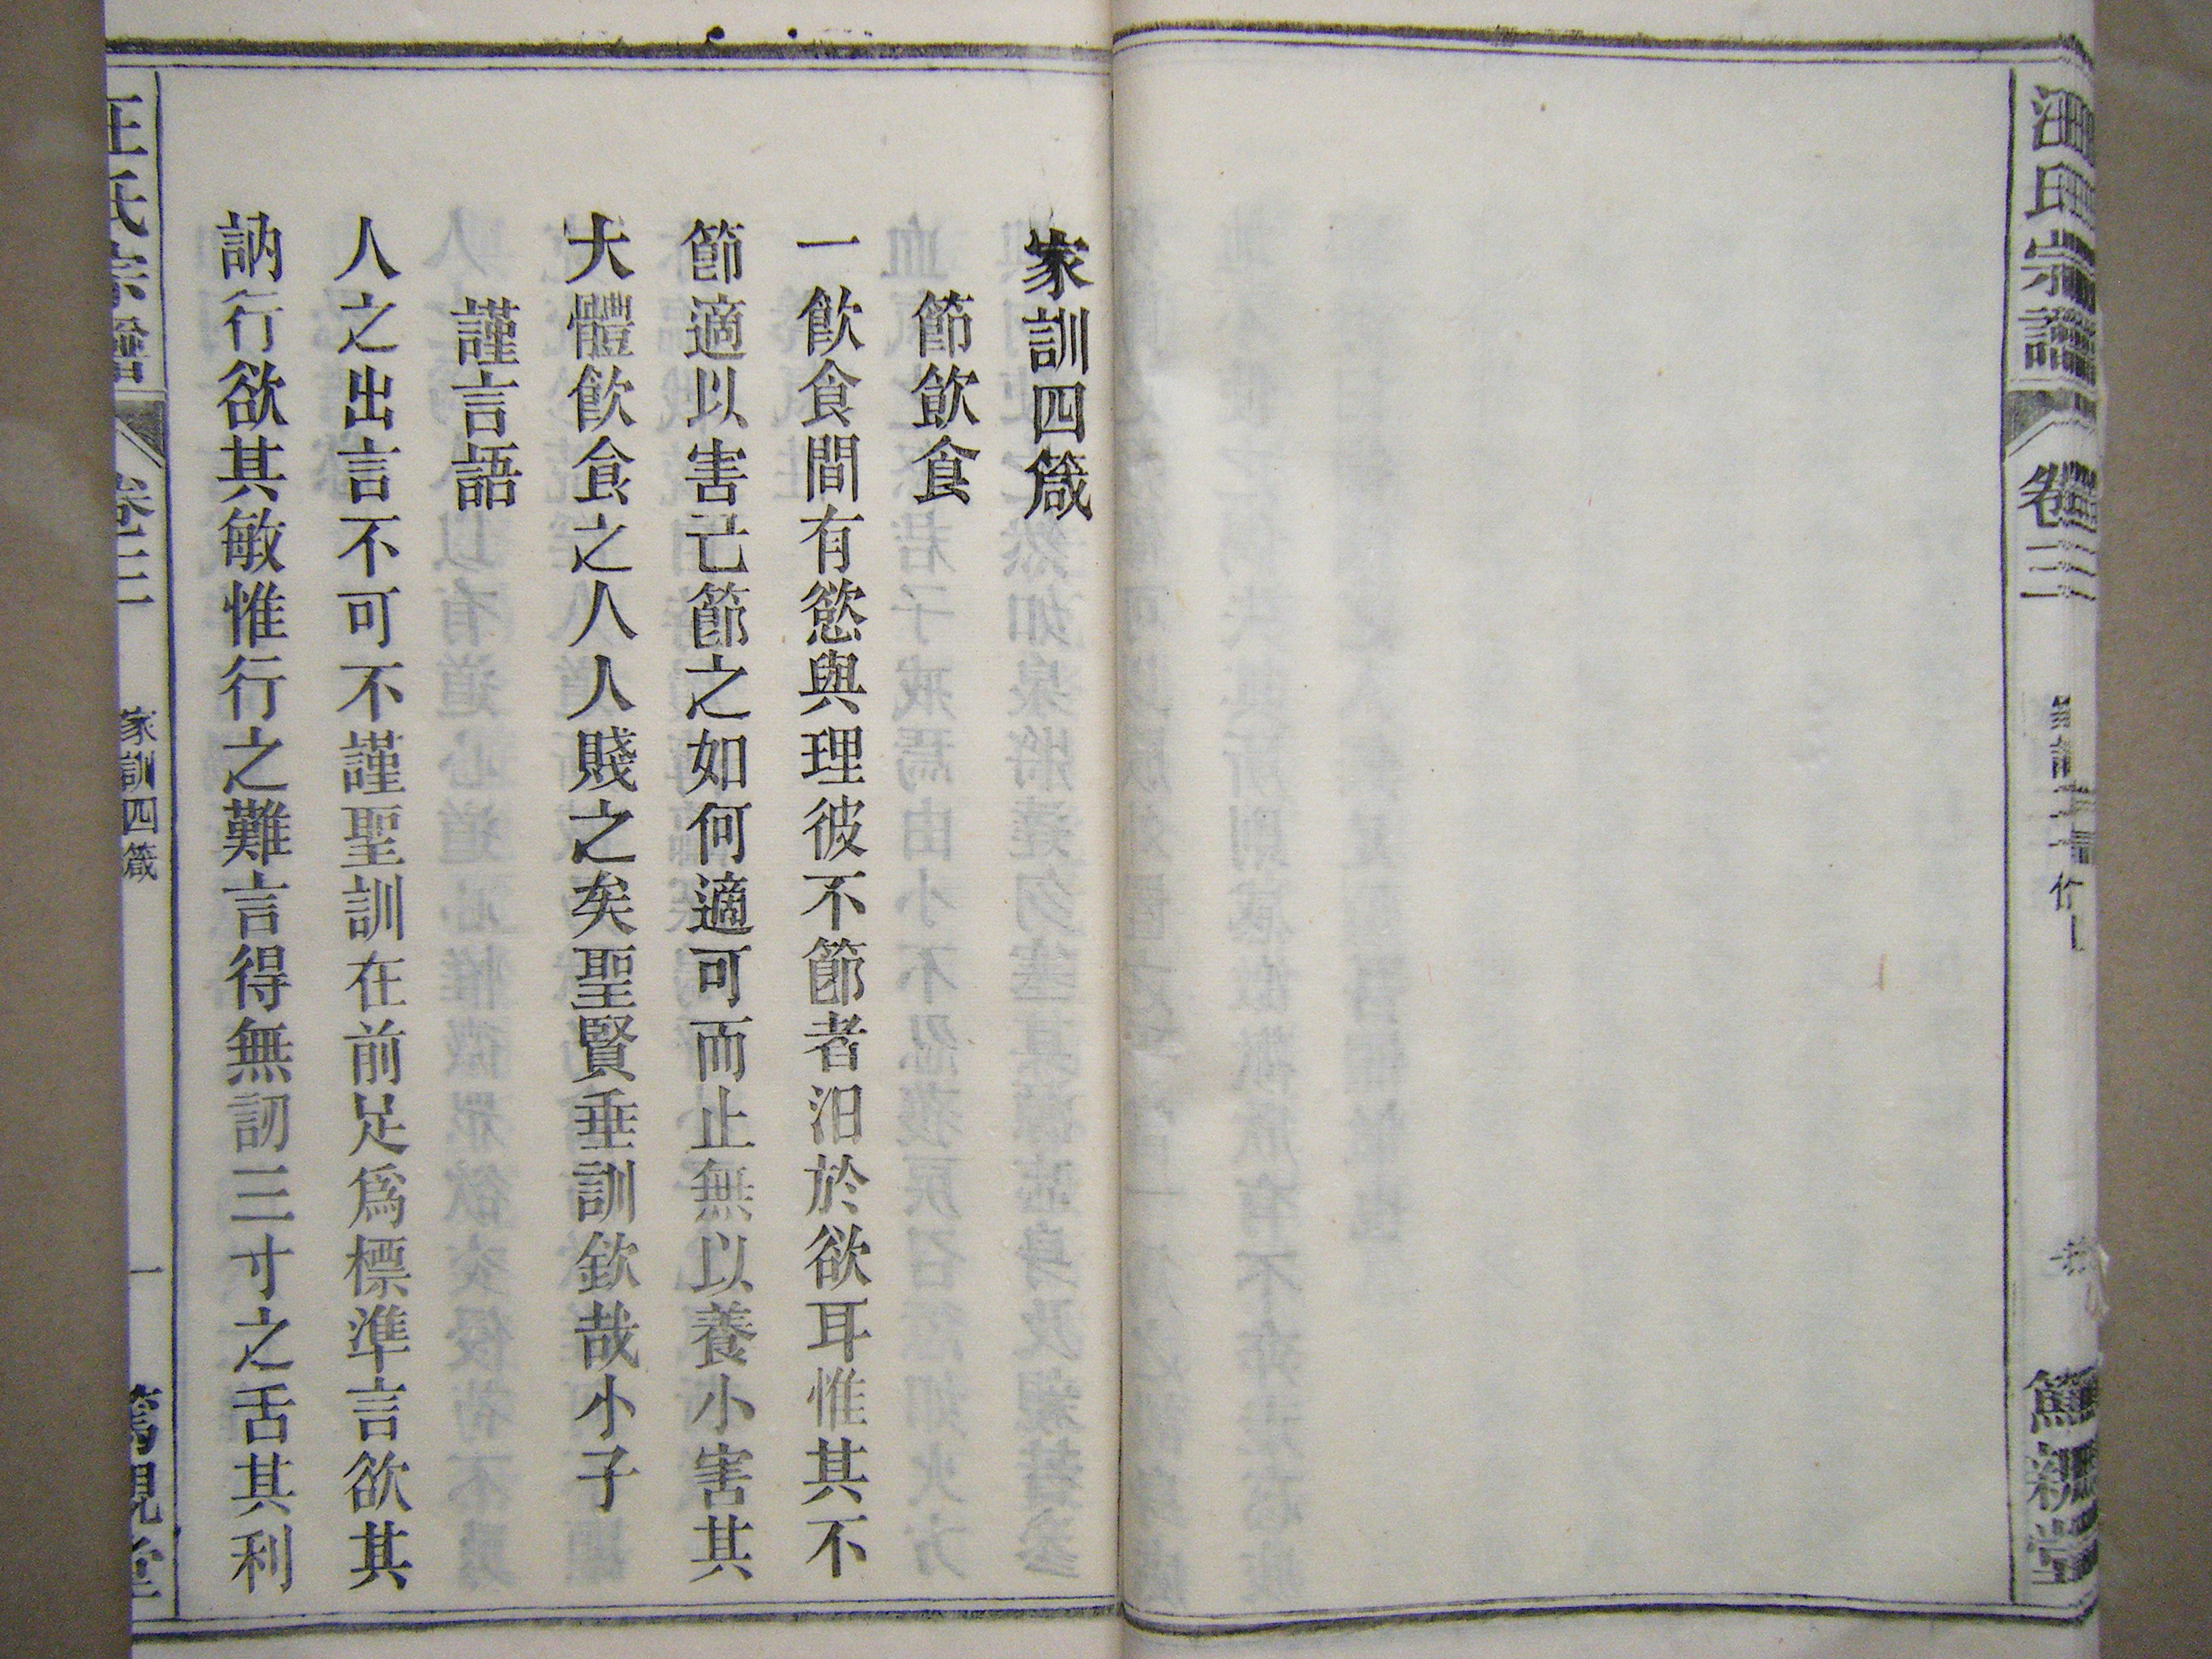 家訓四箴
節飲食
一飲食間有慾與理彼不節者汨於欲耳惟其不
節適以害己節之如何適可而止無以養小害其
大體飲食之人人賤之矣聖賢垂訓欽哉小子
謹言語
人之出言不可不謹聖訓在前足爲標準言欲其
訥行欲其敏惟行之難言得無訒三寸之舌其利
汪氏宗譜 卷三 家訓四箴 一 篤親堂